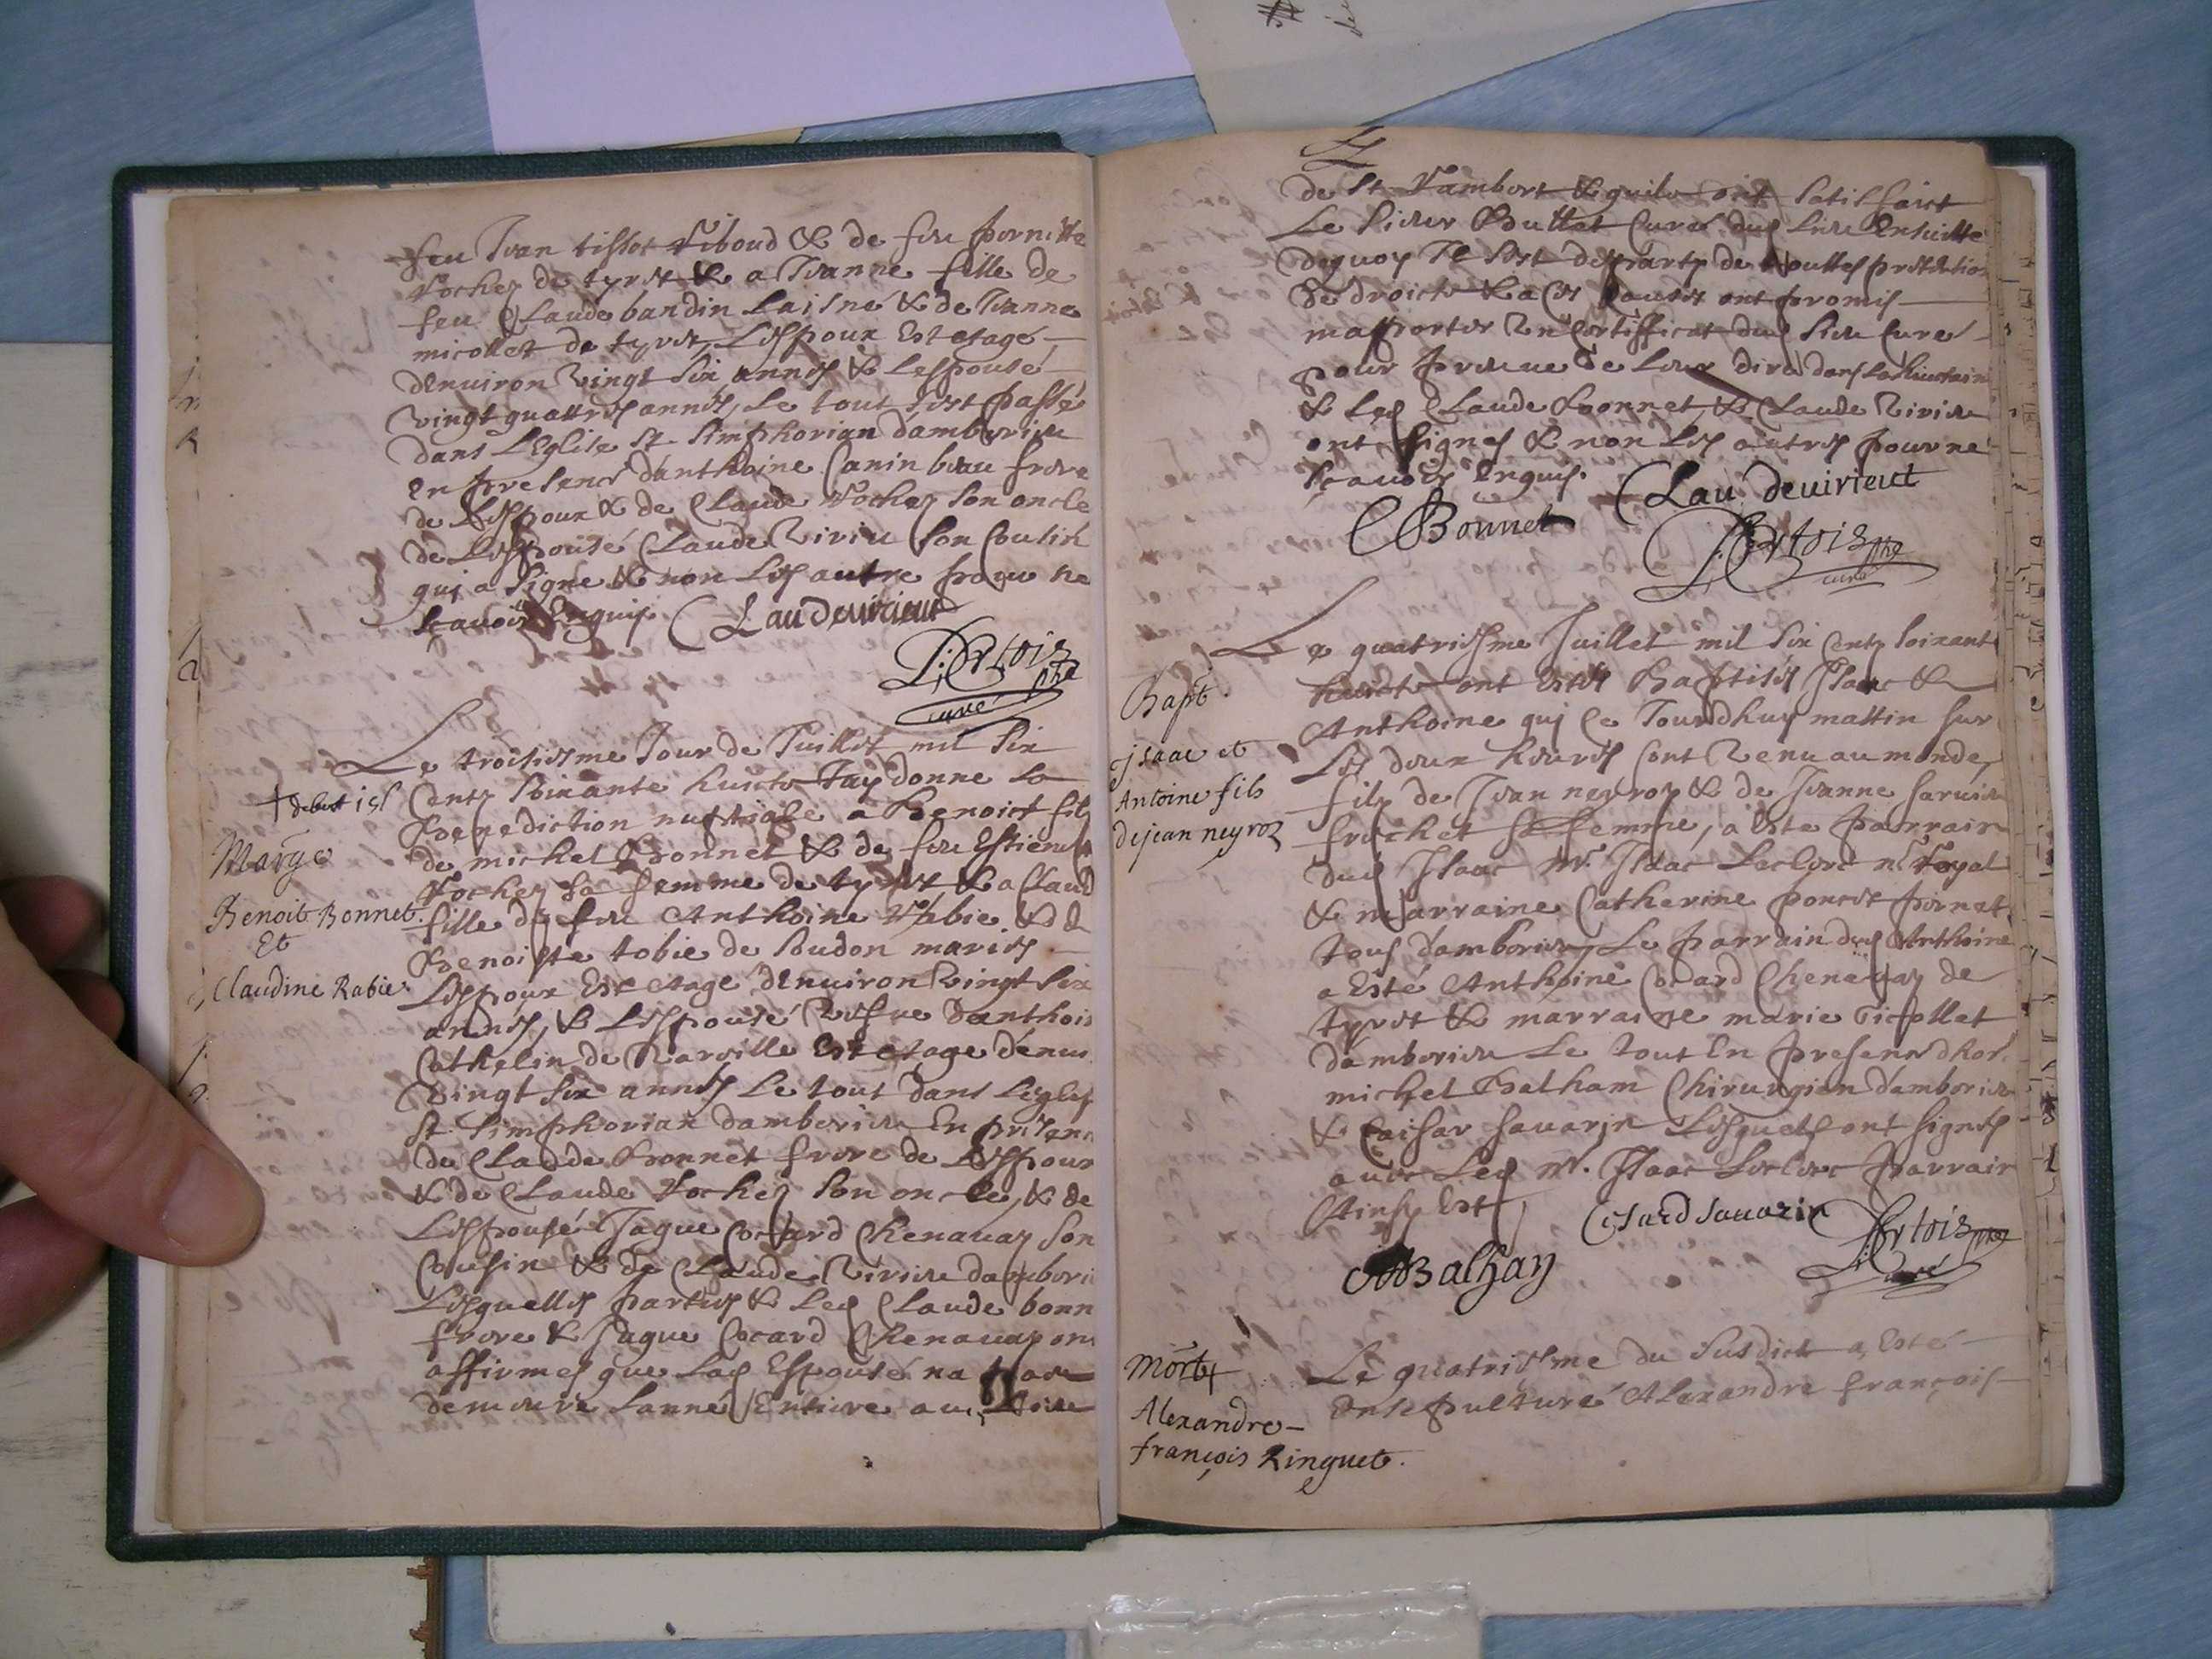 feu Jean tissot Riboud & de feu pernette
Vochez de tyret & a Jeanne fille de
feu Claude bandin Laisné & de Jeanne
micollet de tyret, Lespoux Est etagé
denuiron vingt six années & Lespousé
vingt quattres années, Le tout sest passé
dans LEglise St Simphorian damberieu
En presence danthoine Canin beau frere
de Lespoux & de Claude Vochez son oncle
de Lespousé Claude Virieu son Cousin
qui a signe & non Les autre pour ne
scauoir Enquis. Clau deuirieut
D: Ertois pbre
curé
Le troisiesme Jour de Juillet mil six
Centz soixante huict Jay donne La
Benediction nuptiale a Benoict filz
de michel Bonnet & de feu Estienette
Vochez sa femme de tyret & a Claud
fille de feu Anthoine Rabie & de
Benoiste tobie de Soudon mariés
Lespoux Est etage denuiron vingt six
années, & Lespousé vefue danthoi
Cathelin de Varville Est etage denui
vingt six années Le tout dans Leglise
St. Simphorian damberieu En presen
de Claude Bonnet frere de Lespoux
& de Claude Vochez son oncle, & de
Lespousé Jaque Cocard Chenauaz son
Cousin & de Claude Virieu damberi
Lesquelles parties & Led Claude bonn
frere & Jaque Cocard Chenauaz on
affirmes que Lad Espousé na
demeuré Lanné Entiere au
Marge
Benoit Bonnet.
Et
Claudine Rabie.
de St Rambert & quils ont satisfaict
Le sieur Bouttet Curé dud Lieu Ensuitte
dequoy Il sest departy de touttes pretention
de droict & a Ces Causes ont promis
mapporter Un Certifficat dud sieur Curé
pour preuue de Leur dire dans Lahuictaine
& Led Claude Bonnet & Claude Virieu
ont signes & non Les autres pour ne
scauoir Enquis.
CBonnet Clau deuirieut
D: Ertois pbre
curé
Le quatriesme Juillet mil six Centz soixante
huict ont Estés Baptisés Isaac &
Anthoine qui Ce Jourdhuy mattin sur
Les deux heures sont Venu au monde,
filz de Jean neyroz & de Jeanne
frochet sa femme, a Esté parrain
dud Isaac Mr. Isaac Leclerc nre Royal
& marraine Catherine poncet pernet
tous damberieu, Le parrain dud Anthoine
a Esté Anthoine Cocard Chenauaz de
tyret & marraine marie Micollet
damberieu Le tout En presence dhon.
michel Balham Chirurgien damberieu
& Caisar sauarin Lesquels ont signés
auec Led Mr. Isaac Leclerc parrain
Ainsy Est
Cesard sauarin
MBalhan
D: Ertois pbre
curé
Bapt.
Isaac et
Antoine fils
de jean neyroz
Le quatriesme du susdict a Esté
Ensepulturé Alexandre françois
Mort
Alexandre
françois Ringuet.